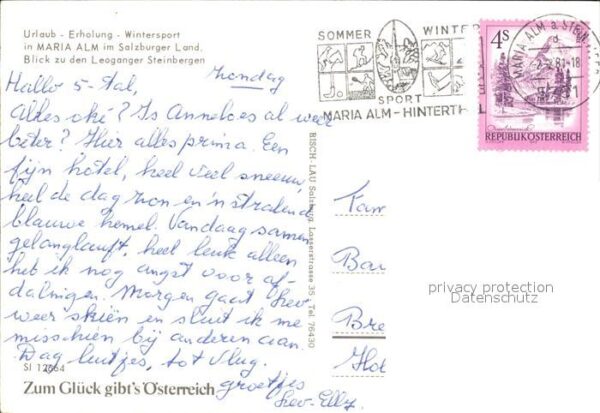 Urlaub - Erholung - Wintersport
in MARIA ALM im Salzburger Land.
Blick zu den Leoganger Steinbergen
Maandag
Hallo 5-tal,
Alles oké? Is Anneloes al weer
beter? Hier alles prima. Een
fijn hotel, heel veel sneeuw,
heel de dag zon en 'n stralend
blauwe hemel. Vandaag samen
gelanglauft, heel leuk alleen
heb ik nog angst voor af-
dalingen. Morgen gaat Sev
weer skiën en sluit ik me
misschien bij anderen aan.
Dag luitjes, tot vlug.
groetjes
Sev-Elly.
SI 12664
Zum Glück gibt's Österreich
RISCH-LAU Salzburg, Lasserstrasse 35, Tel. 76430
SOMMER WINTER
SPORT
MARIA ALM - HINTERTH
MARIA ALM a. STEIN
4S
REPUBLIK ÖSTERREICH
Fam
Bau
Bre
Hol
privacy protection
Datenschutz